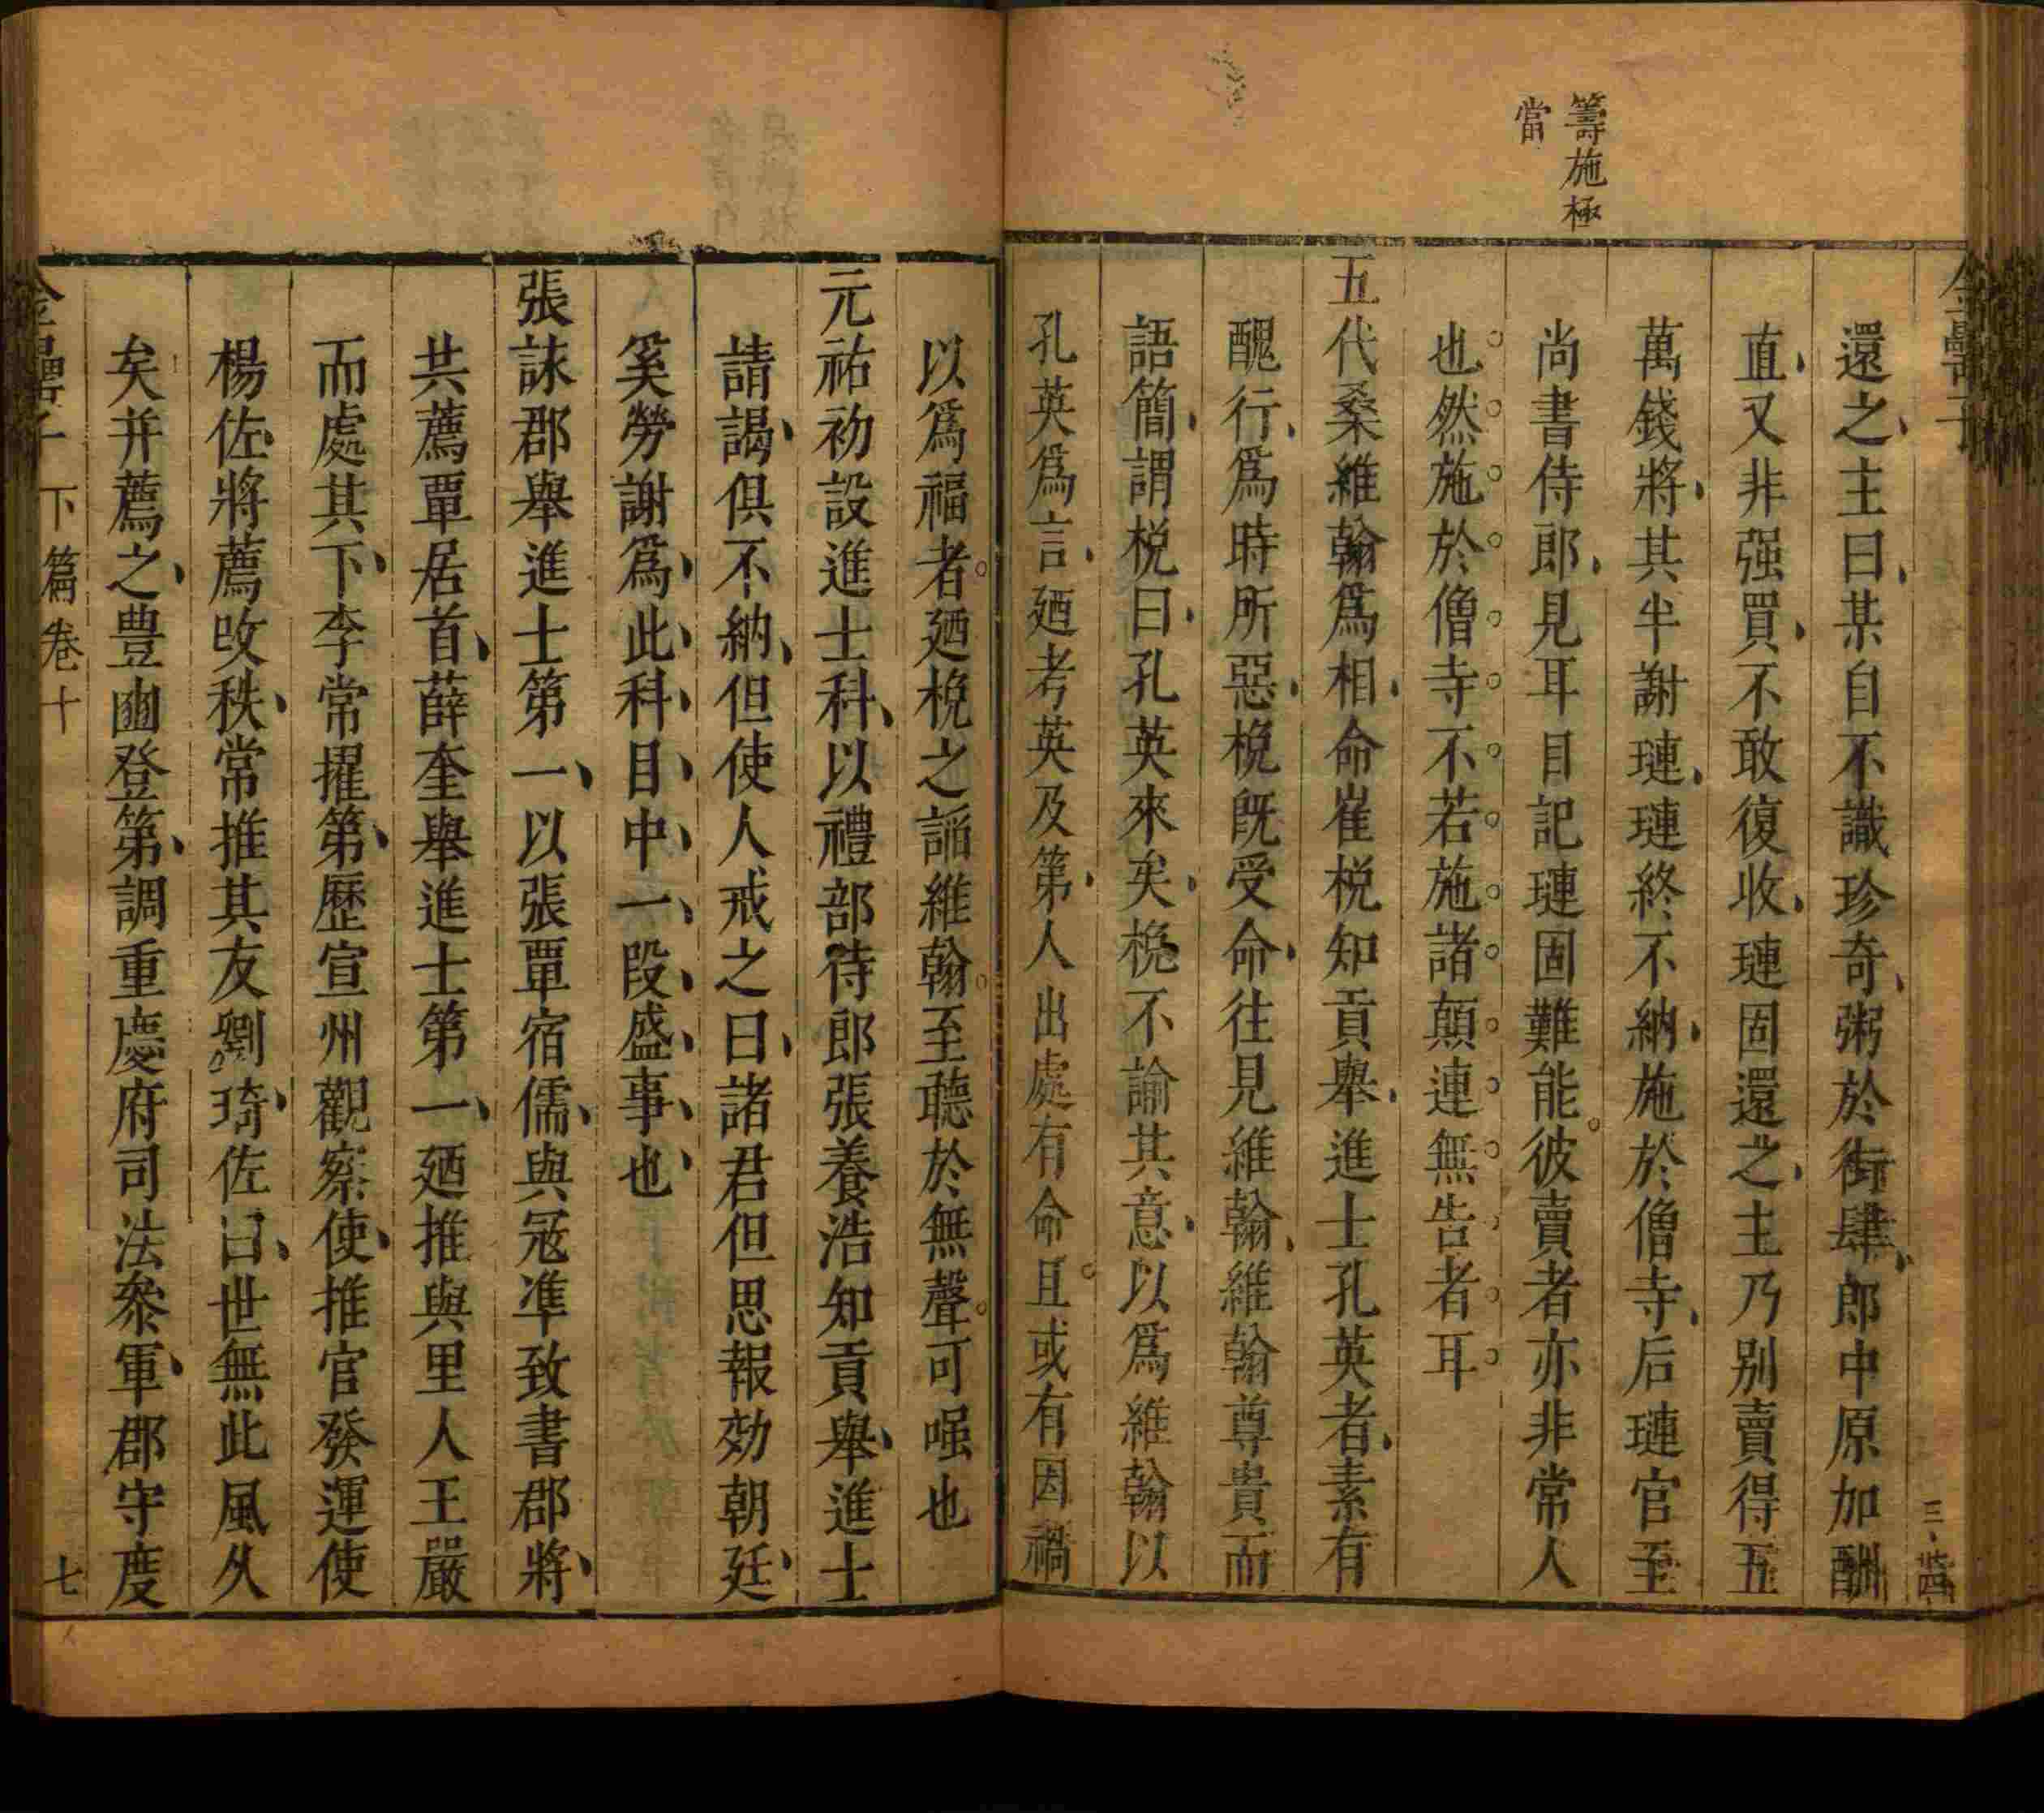 籌施極
當
還之主曰某自不識珍奇粥於街肆郎中原加酬
直又非强買不敢復收璉固還之主乃別賣得五
萬錢將其半謝璉璉終不納施於僧寺后璉官至
尚書侍郎見耳目記璉固難能彼賣者亦非常人
也然施於僧寺不若施諸顛連無告者耳
五代桑維翰爲相命崔梲知貢舉進士孔英者素有
醜行爲時所惡梲既受命往見維翰維翰尊貴而
語簡謂梲曰孔英來矣梲不諭其意以爲維翰以
孔英爲言廼考英及第人出處有命且或有因禍
以爲福者廼梲之謟維翰至聽於無聲可嗤也
元祐初設進士科以禮部侍郎張養浩知貢舉進士
請謁俱不納但使人戒之曰諸君但思報効朝廷
奚勞謝爲此科目中一段盛事也
張詠郡舉進士第一以張覃宿儒與冦凖致書郡將
共薦覃居首薛奎舉進士第一廼推與里人王嚴
而處其下李常擢第歷宣州觀察使推官發運使
楊佐將薦攺秩常推其友劉琦佐曰世無此風久
矣并薦之豊豳登第調重慶府司法叅軍郡守度
金罍子 下篇卷十
七